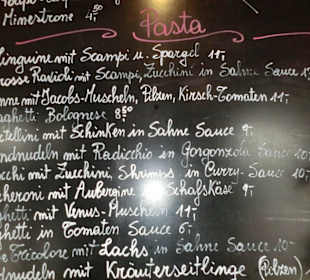 Minestrone 4,50
Pasta
Linguine mit Scampi u. Spargel 11,-
rosse Ravioli mit Scampi, Zucchini in Sahne Sauce 1
nne mit Jacobs-Muscheln, Pilzen, Kirsch-Tomaten 11,-
aghetti Bolognese 8,50
rtellini mit Schinken in Sahne Sauce 9,-
andnudeln mit Radicchio in Gorgonzola Sauce 10
occhi mit Zucchini, Shrimps in Curry-Sauce 10,-
cheroni mit Aubergine Schafskäse 9,-
ghetti mit Venus-Muscheln 11,-
ghetti in Tomaten Sauce 6,-
e Tricolore mit Lachs in Sahne Sauce 10-
ndnudeln mit Kräuterseitlinge (Pilzen)